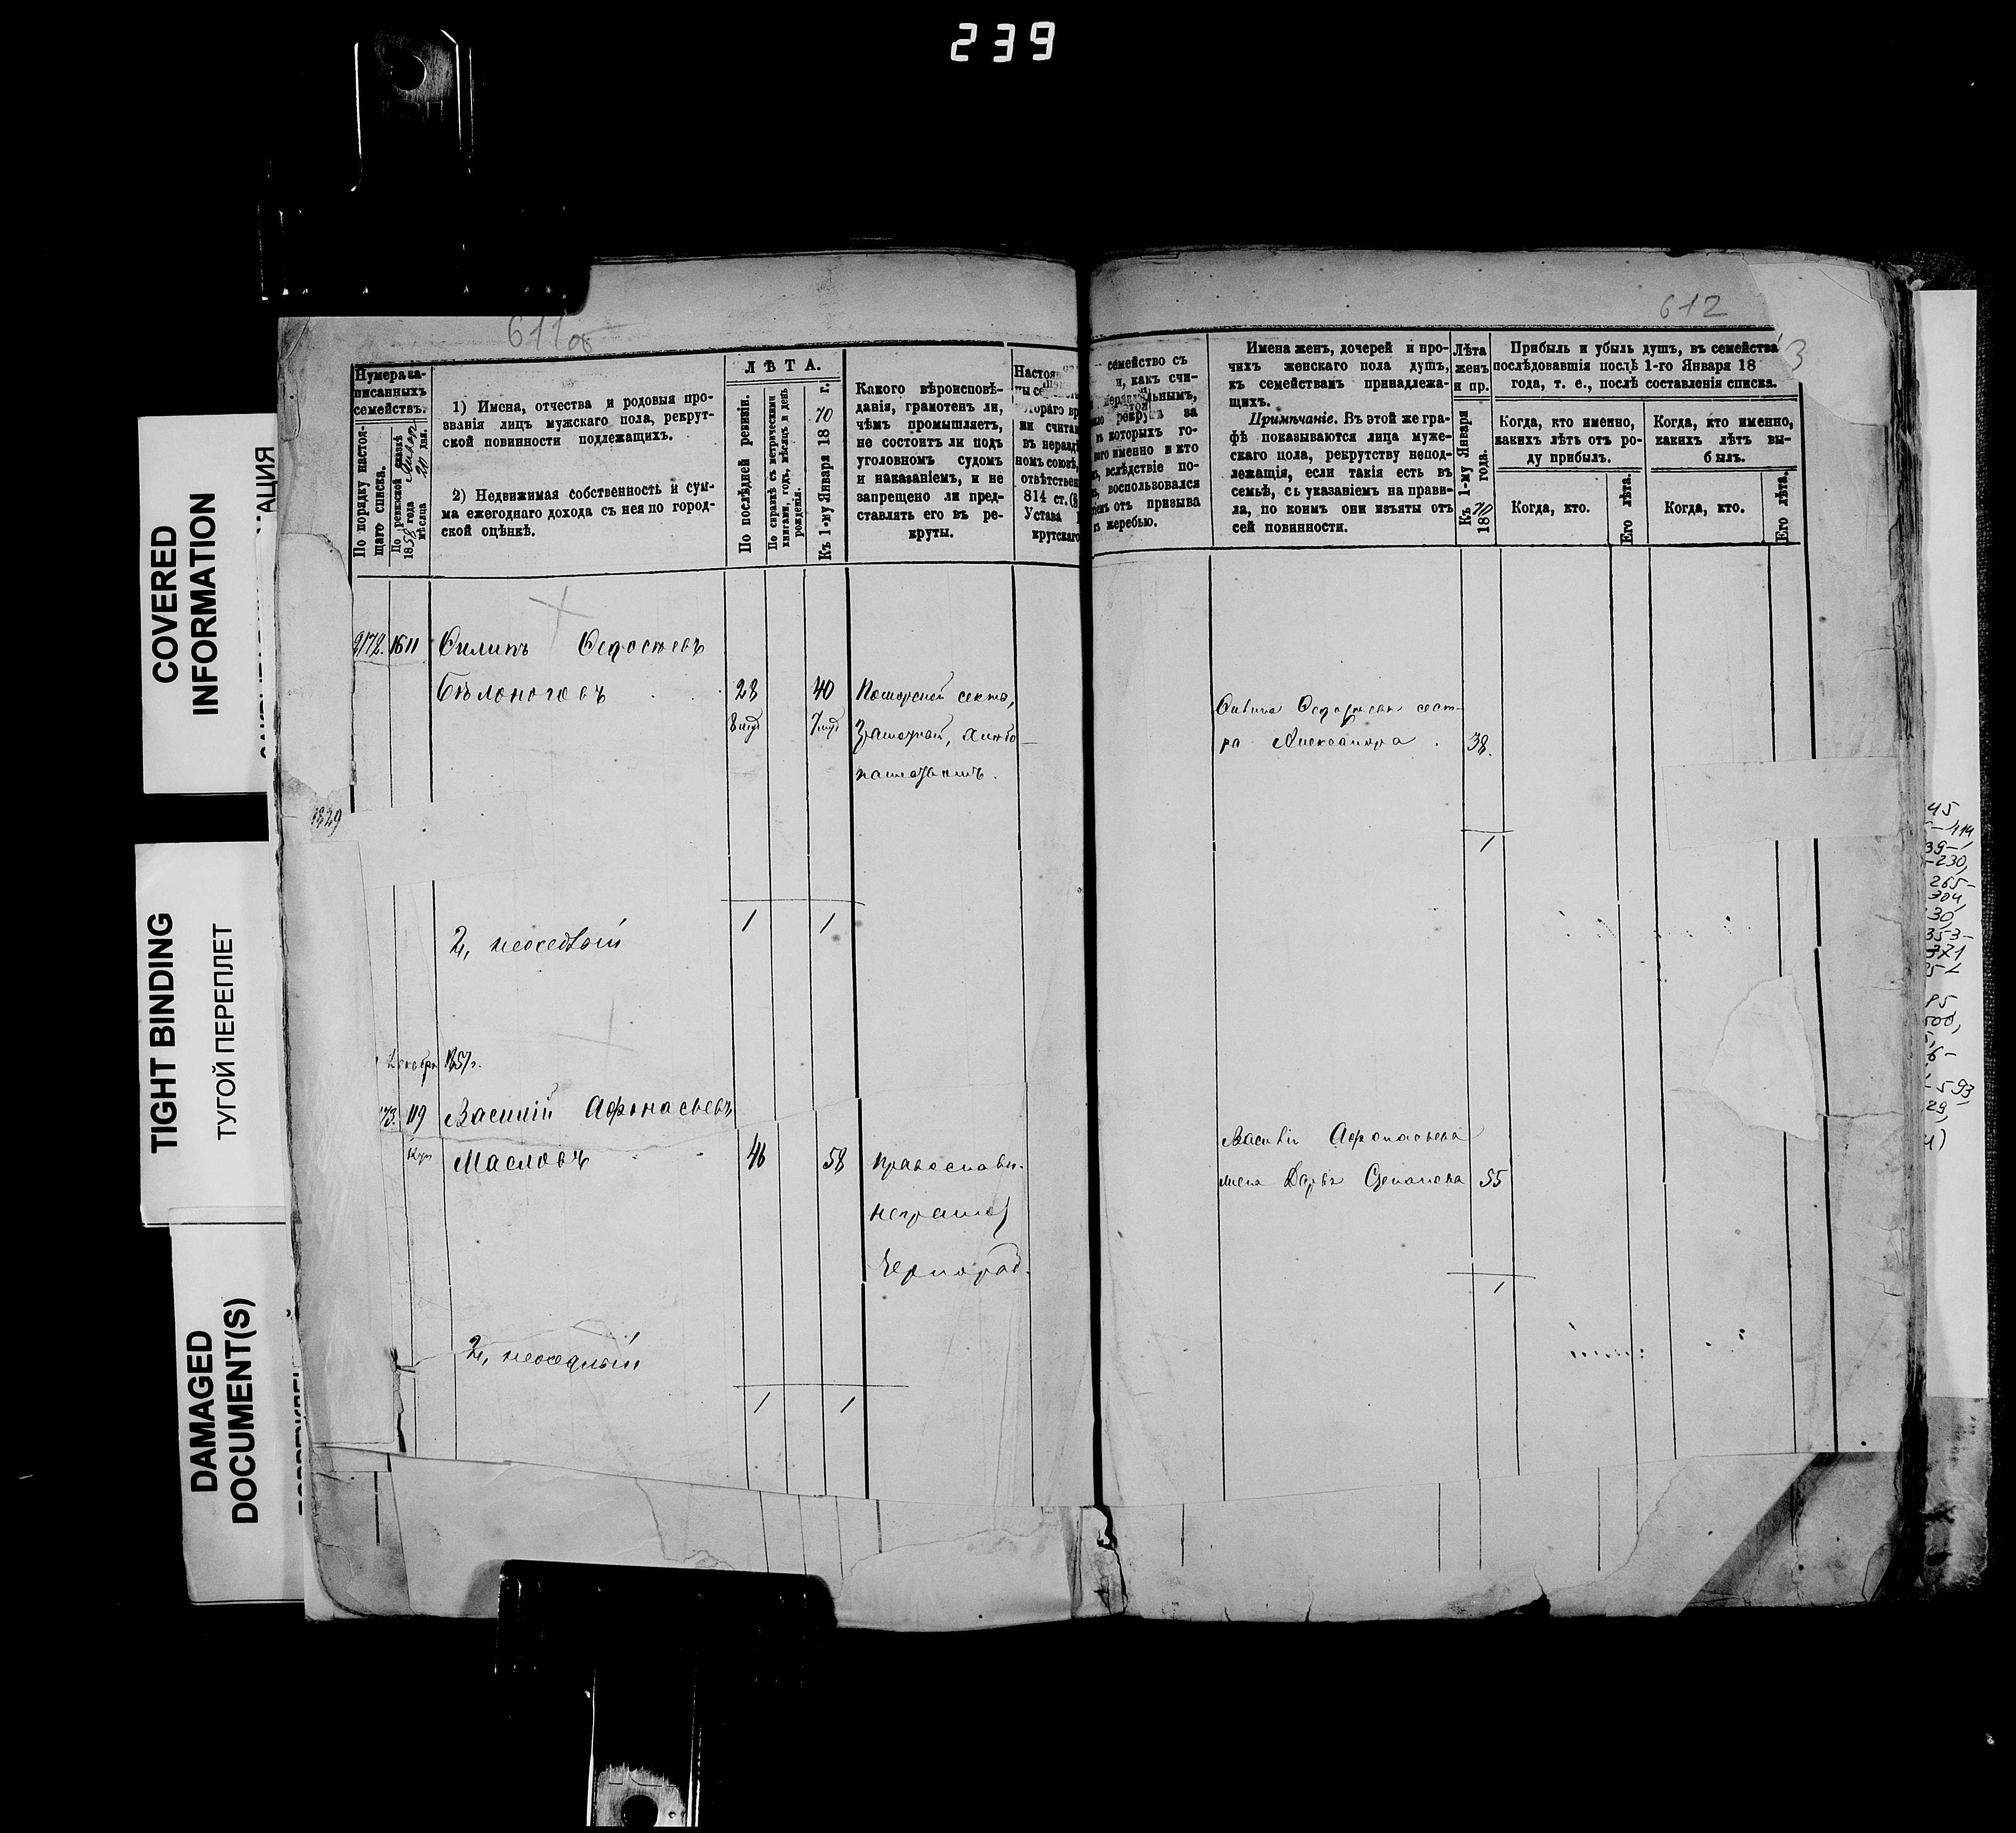 239
COVERED
INFORMATION
TIGHT BINDING
ТУГОЙ ПЕРЕПЛЕТ
DAMAGED
DOCUMENT(S)
611об
Нумера за-
писанныхъ
семействъ.
По порядку настоя-
щаго списка.
По ревизской сказкѣ
1858 года
мѣсяца 20 дня.
1) Имена, отчества и родовыя про-
званія лицъ мужскаго пола, рекрут-
ской повинности подлежащихъ.
2) Недвижимая собственность и сум-
ма ежегоднаго дохода съ нея по город-
ской оцѣнкѣ.
ЛѢТА.
По послѣдней ревизіи.
По справкѣ съ метрическими
книгами, годъ, мѣсяцъ и день
рожденія.
Къ 1-му Января 1870 г.
Какого вѣроисповѣ-
данія, грамотенъ ли,
чѣмъ промышляетъ,
не состоитъ ли подъ
уголовномъ судомъ
и наказаніемъ, и не
запрещено ли пред-
ставлять его въ ре-
круты.
2172. 1611 Филипъ Федосѣевъ
Бѣлоноговъ 28 40 Поморской секты,
Грамотной, хлѣбо-
пашествомъ.
1829
1 1
2, неоседлый
Декабря 1857г.
173. 119 Василій Афонасьевъ
Масловъ 46 58 православн.
неграмот
Чернораб.
2, неоседлый
1 1
612
3
семейство съ
и, какъ счи-
рекрутъ за
въ которыхъ го-
кого именно и кто
вслѣдствіе по-
воспользовался
отъ призыва
жеребью.
Имена женъ, дочерей и про-
чихъ женскаго пола душъ,
къ семействамъ принадлежа-
щихъ.
Примѣчаніе. Въ этой же гра-
фѣ показываются лица муже-
скаго пола, рекрутству непод-
лежащія, если такія есть въ
семьѣ, съ указаніемъ на прави-
ла, по коимъ они изъяты отъ
сей повинности.
Лѣта
женъ
и пр.
Къ 1-му Января
1870 года.
Прибыль и убыль душъ, въ семейства
послѣдовавшія послѣ 1-го Января 18
года, т. е., послѣ составленія списка.
Когда, кто именно,
какихъ лѣтъ отъ ро-
ду прибылъ.
Когда, кто именно,
какихъ лѣтъ вы-
былъ.
Когда, кто.
Его лѣта.
Когда, кто.
Его лѣта.
сест-
ра Александра 38.
1
Василія Афонасьева
жена Дарья Степанова 55
1